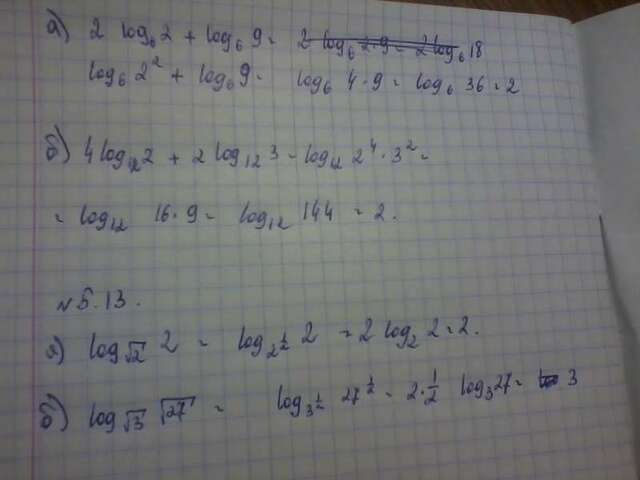 а) 2 log₆2 + log₆ 9 = 2 log₆ 2·9 = 2 log₆ 18
log₆ 2² + log₆ 9 = log₆ 4·9 = log₆ 36 = 2
б) 4 log₁₂2 + 2 log₁₂ 3 = log₁₂ 2⁴·3² =
= log₁₂ 16·9 = log₁₂ 144 = 2.
№5.13.
а) log_√2 2 = log_2^½ 2 = 2 log₂ 2 = 2.
б) log_√3 √27 = log_3^½ 27^½ = 2·½ log₃27 = 3